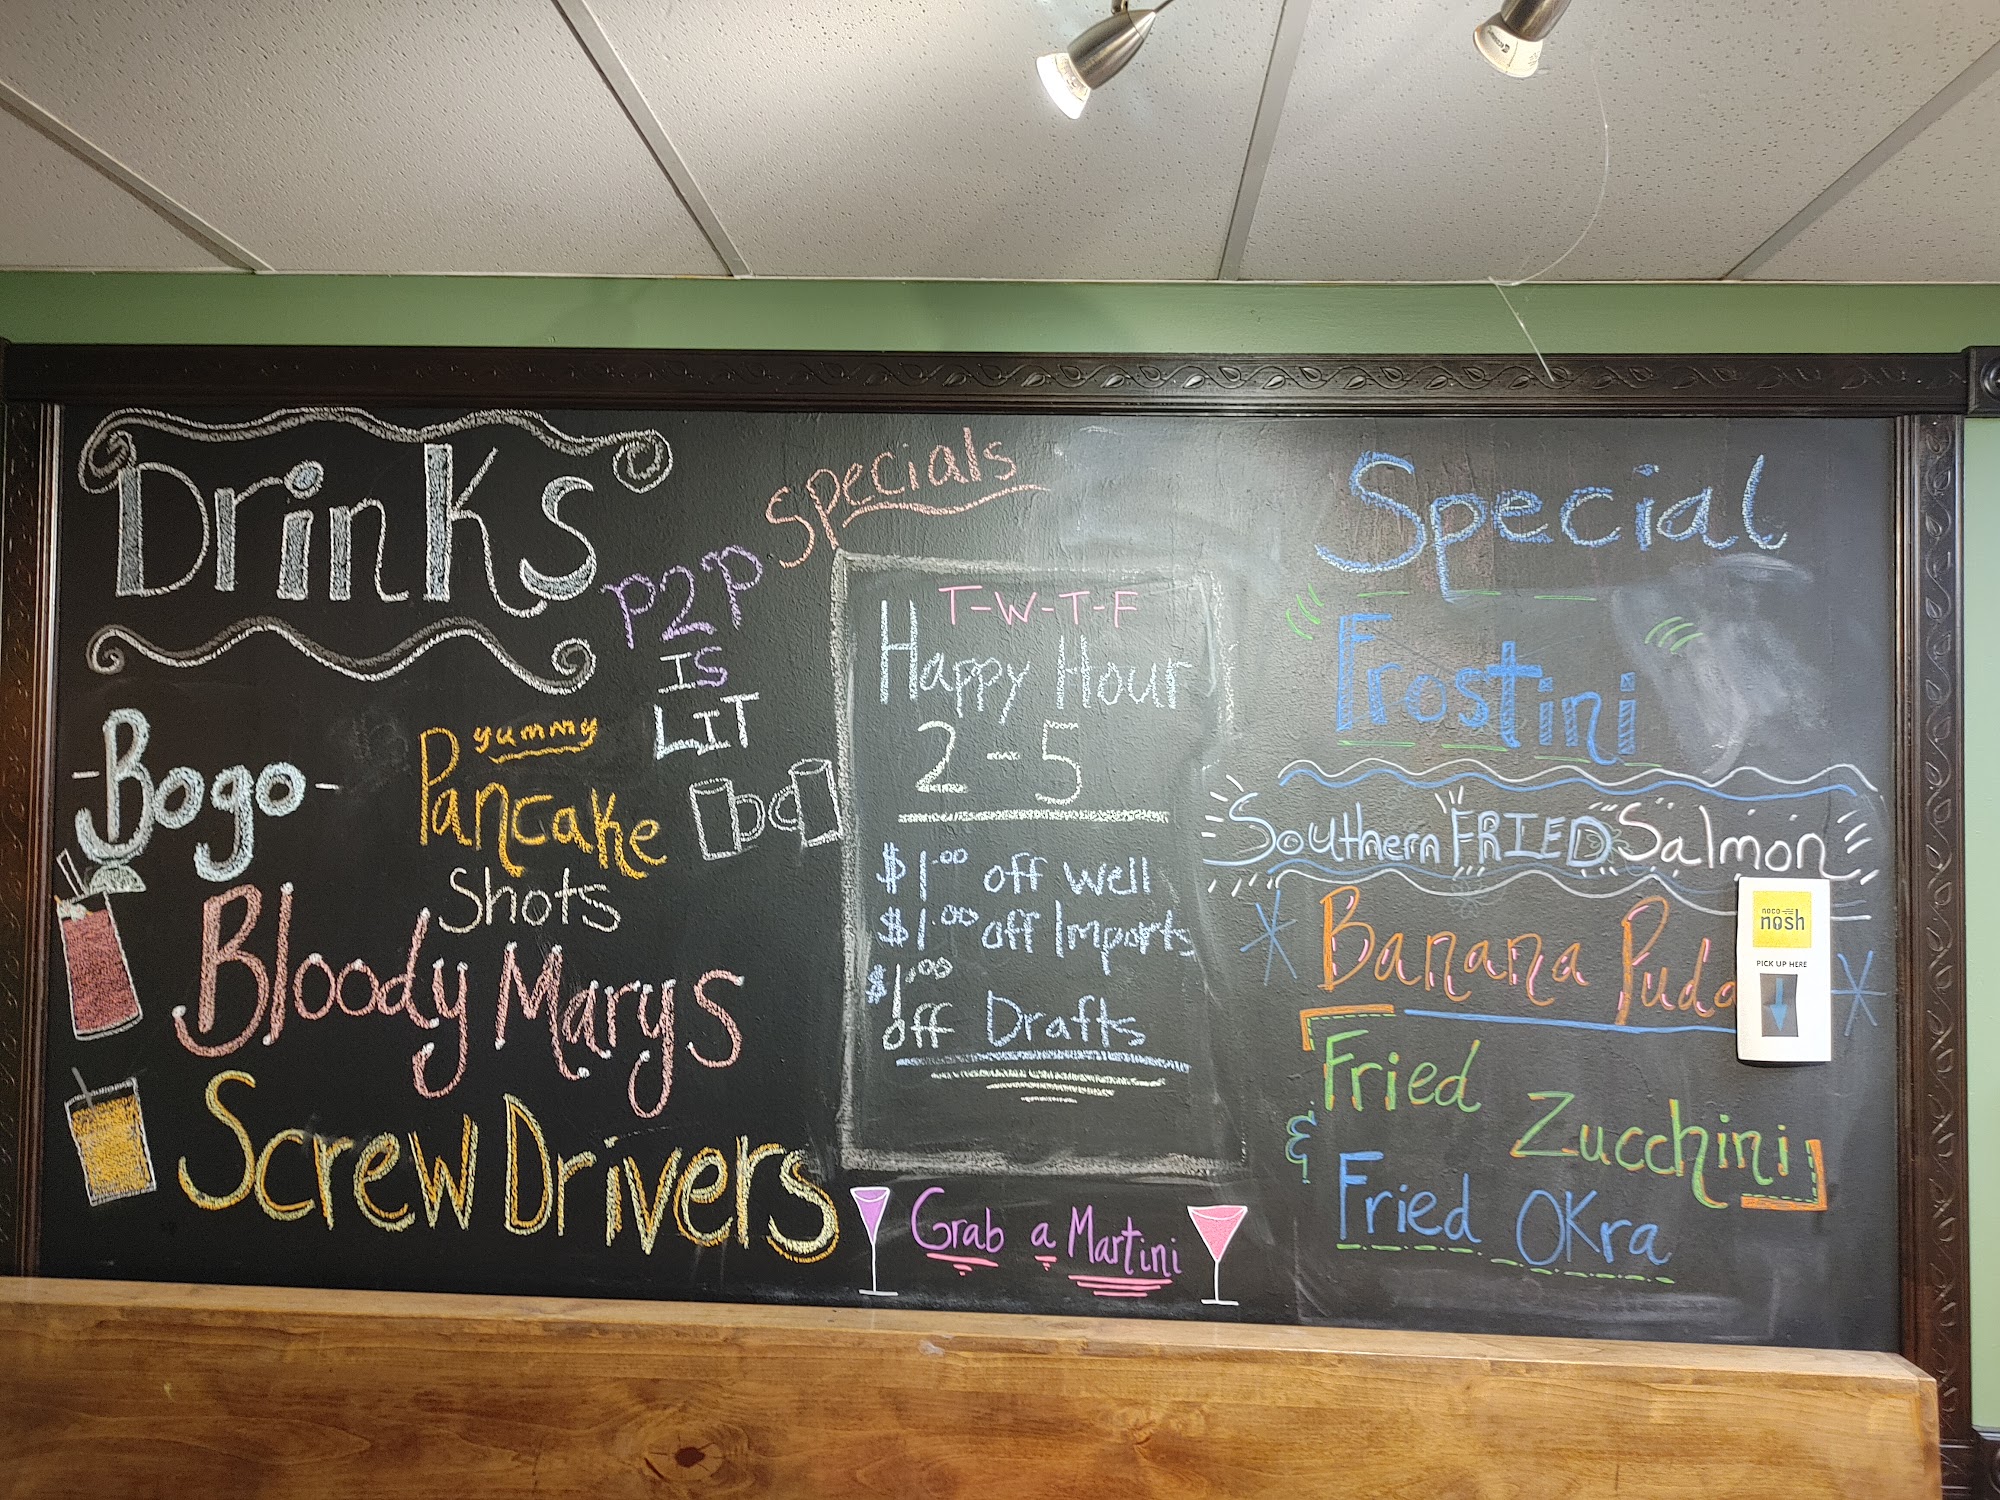 Drinks
Specials
P2P
IS
LIT
-Bogo-
yummy
Pancake
Shots
Bloody Marys
Screw Drivers
T-W-T-F
Happy Hour
2-5
$1.00 off Well
$1.00 off Imports
$1.00
off Drafts
Grab a Martini
Special
Frostini
Southern FRIED Salmon
Banana Pudd
noco
nosh
PICK UP HERE
Fried
Zucchini
& Fried OKra